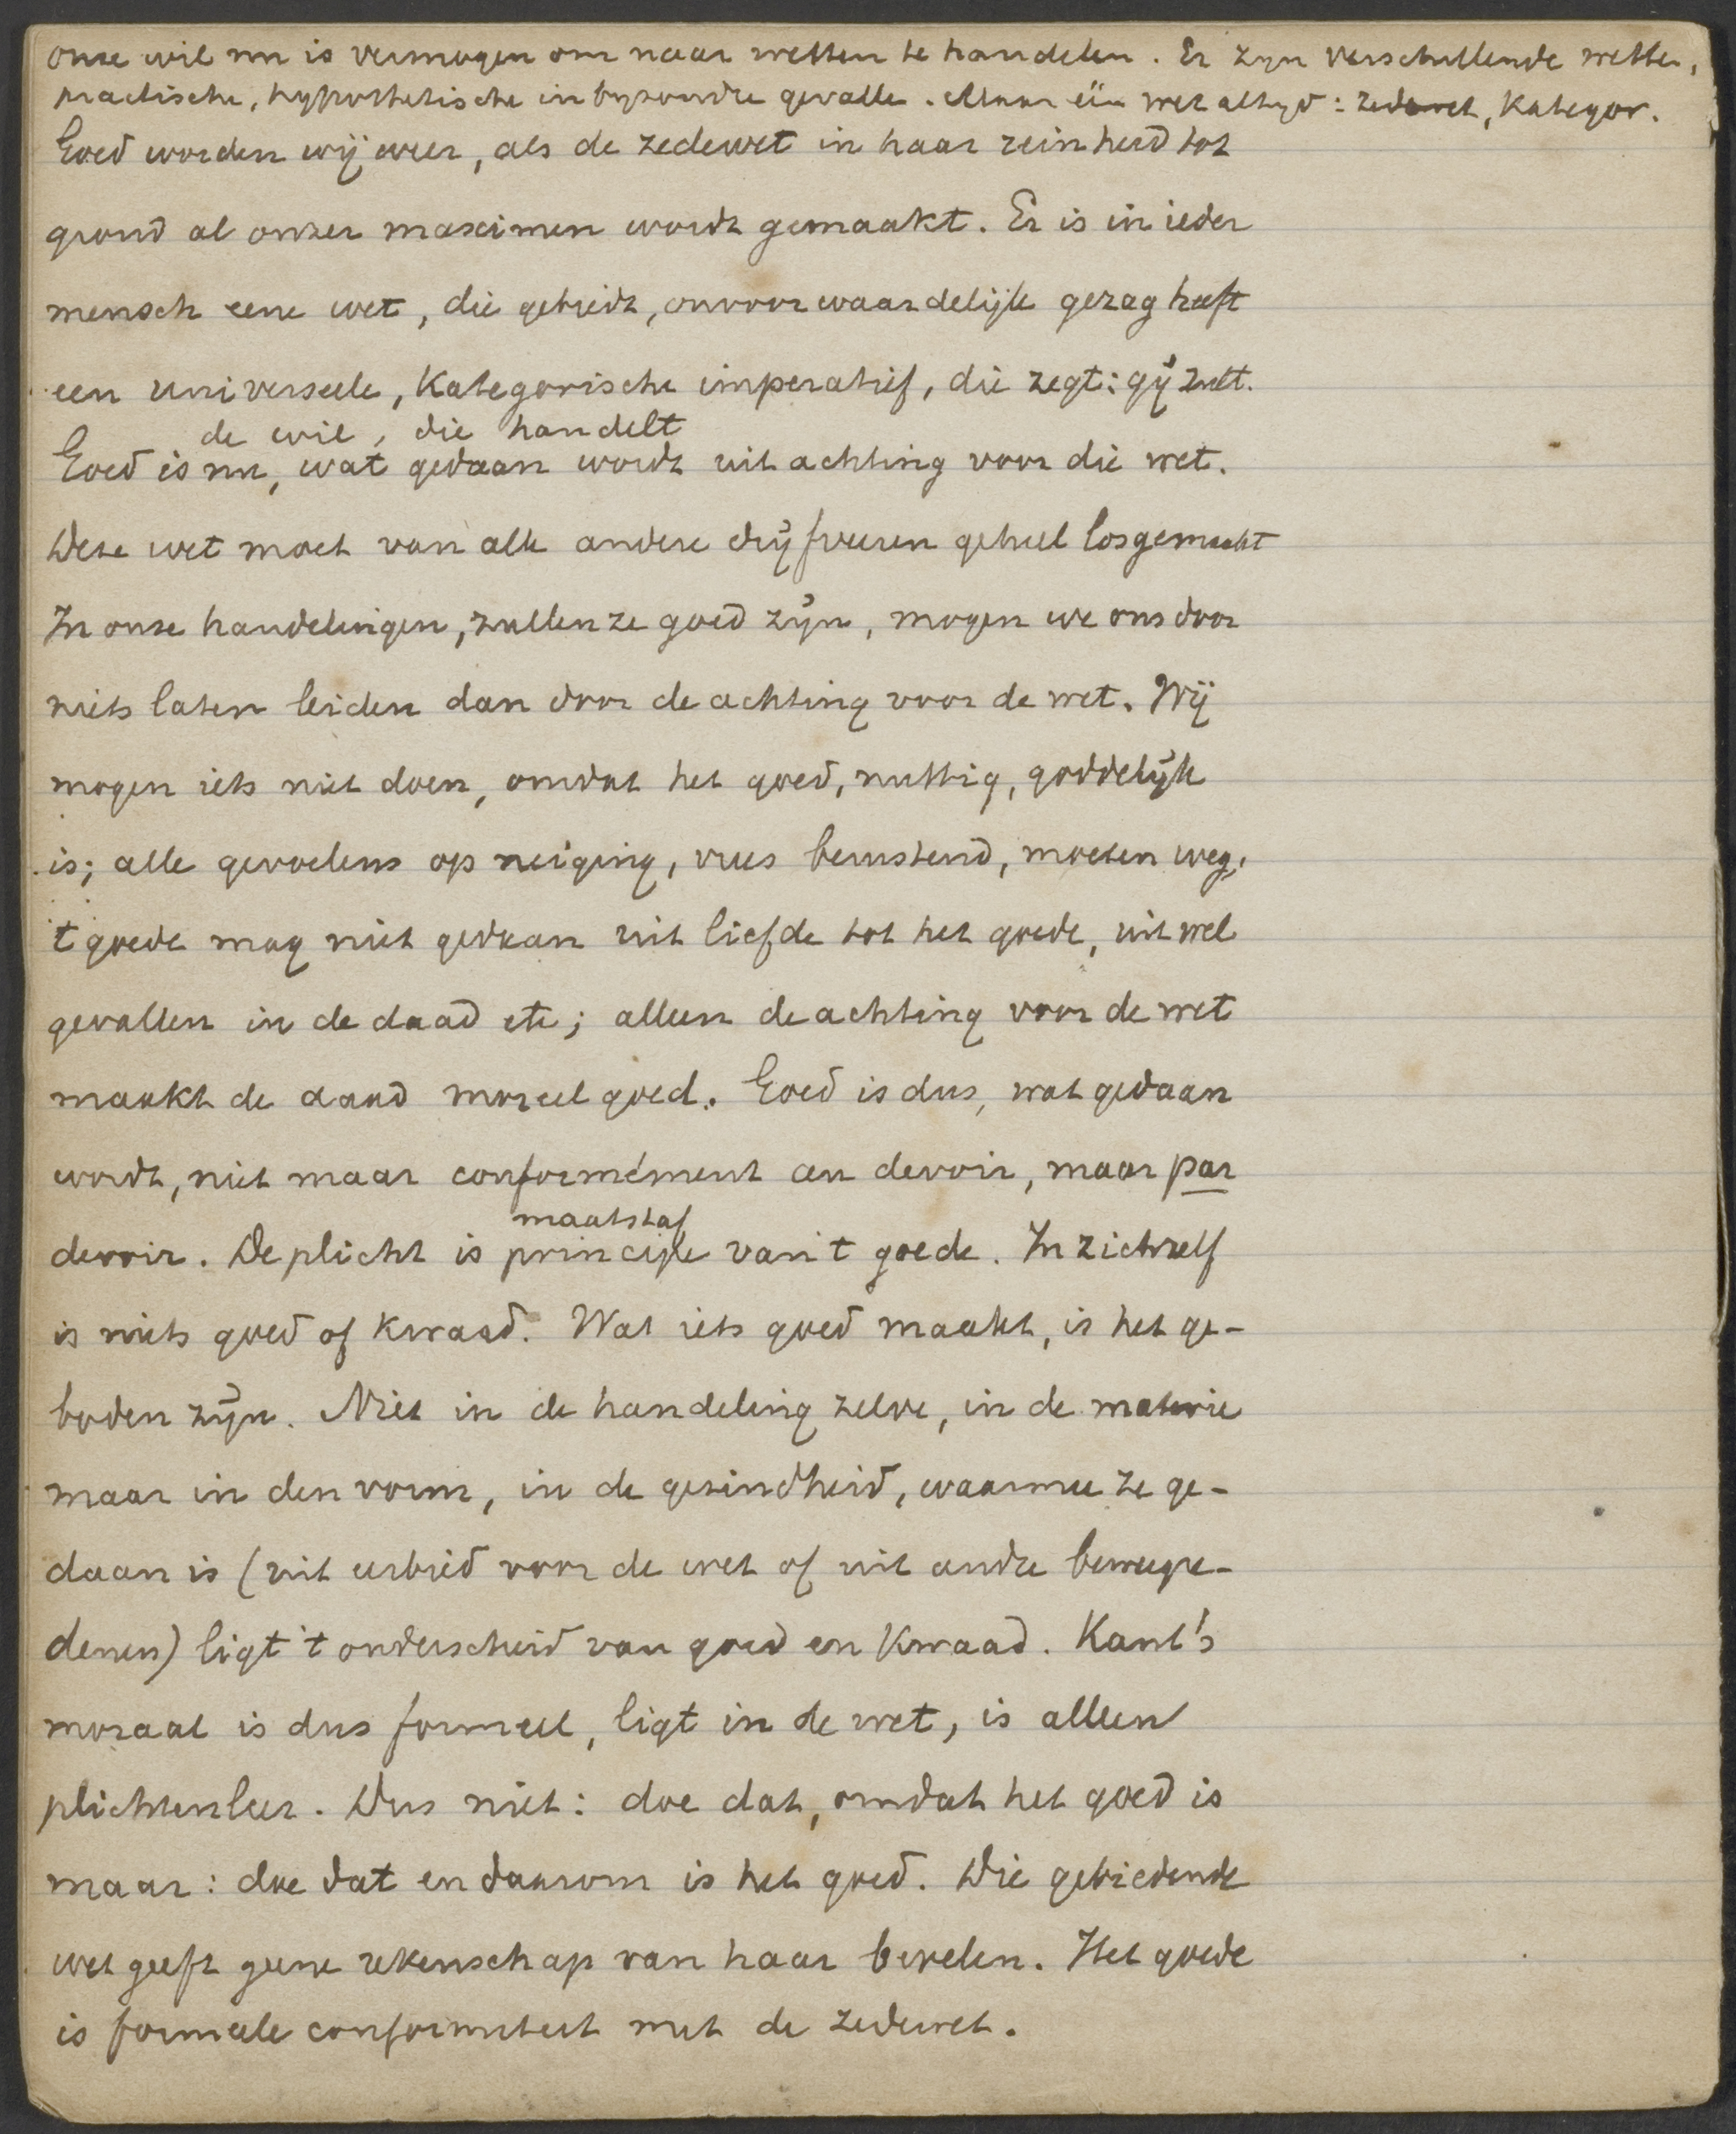 onze wil nu is vermogen om naar wetten te handelen. Er zyn verschillende wetten,
practische, hypothetische in byzondre gevalle. Maar één wet altyd: zedewet, Kategor.
Goed worden wij weer, als de zedewet in haar reinheid tot
grond al onzer maximen wordt gemaakt. Er is in ieder
mensch eene wet, die gebiedt, onvoorwaardelijk gezag heeft
een universeele, Kategorische imperatief, die zegt: gij zult.
de wil, die handelt
Goed is nu, wat gedaan wordt uit achting voor die wet.
Deze wet moet van alle andere drijfveeren geheel losgemaakt
In onze handelingen, zullen ze goed zijn, mogen we ons door
niets laten leiden dan door de achting voor de wet. Wij
mogen iets niet doen, omdat het goed, nuttig, goddelijk
is; alle gevoelens op neiging, vrees berustend, moeten weg,
't goede mag niet gedaan uit liefde tot het goede, uit wel
gevallen in de daad etc; alleen de achting voor de wet
maakt de daad moreel goed. Goed is dus, wat gedaan
wordt, niet maar conformément au devoir, maar par
maatstaf
devoir. De plicht is principe van 't goede. In zichzelf
is niets goed of Kwaad. Wat iets goed maakt, is het ge-
boden zijn. Niet in de handeling zelve, in de materie
maar in den vorm, in de gezindheid, waarmee ze ge-
daan is (uit eerbied voor de wet of uit andre beweegre-
denen) ligt 't onderscheid van goed en Kwaad. Kant's
moraal is dus formeel, ligt in de wet, is alleen
plichtenleer. Dus niet: doe dat, omdat het goed is
maar: doe dat en daarom is het goed. Die gebiedende
wet geeft geene rekenschap van haar bevelen. Het goede
is formeele conformiteit met de zedewet.